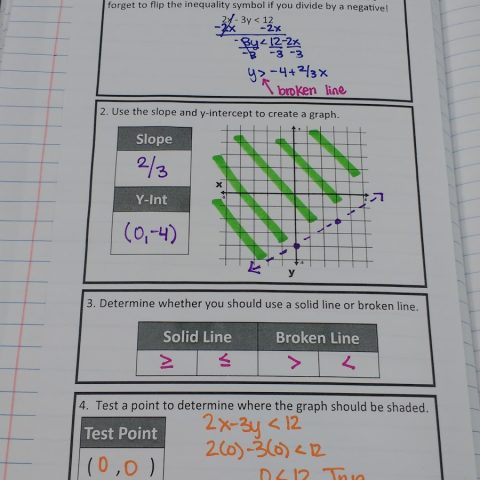 forget to flip the inequality symbol if you divide by a negative!
2x - 3y < 12
-2x -2x
-3y < 12-2x
-3 -3 -3
y > -4 + 2/3 x
broken line
2. Use the slope and y-intercept to create a graph.
Slope
2/3
Y-Int
(0,-4)
x
y
3. Determine whether you should use a solid line or broken line.
Solid Line Broken Line
≥ ≤ > <
4. Test a point to determine where the graph should be shaded.
Test Point
(0,0)
2x-3y < 12
2(0)-3(0) < 12
0 < 12 True